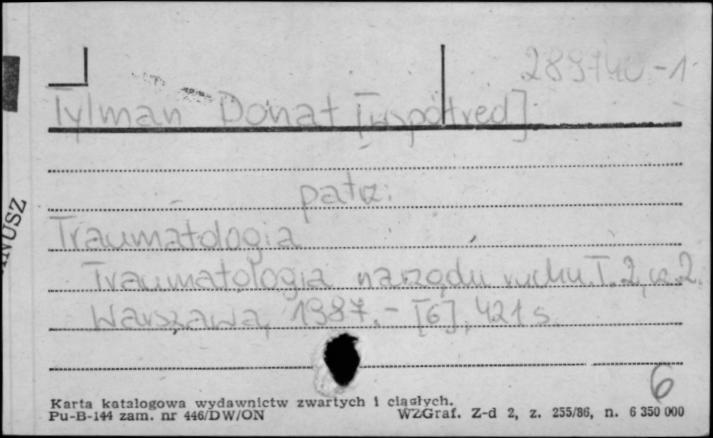 289740-1
Tylman Donat [współred].
patrz:
Traumatologia
Traumatologia narządu ruchu. T. 2, cz. 2.
Warszawa, 1987. - [6], 421 s.
6
Karta katalogowa wydawnictw zwartych i ciągłych.
Pu-B-144 zam. nr 446/DW/ON WZGraf. Z-d 2, z. 255/86, n. 6 350 000